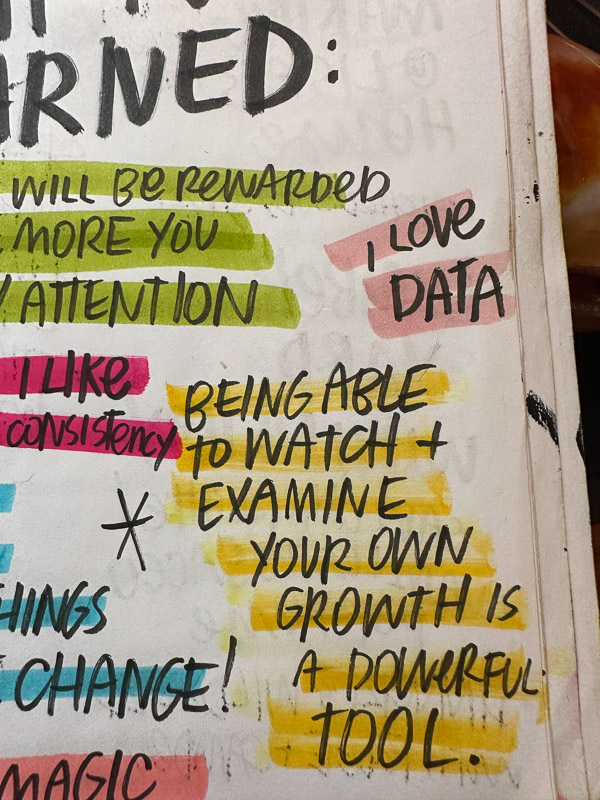 ARNED:
WILL BE REWARDED
MORE YOU
ATTENTION
I LOVE
DATA
I LIKE
CONSISTENCY
BEING ABLE
TO WATCH +
EXAMINE
YOUR OWN
GROWTH IS
A POWERFUL
TOOL.
*
HINGS
CHANGE!
MAGIC